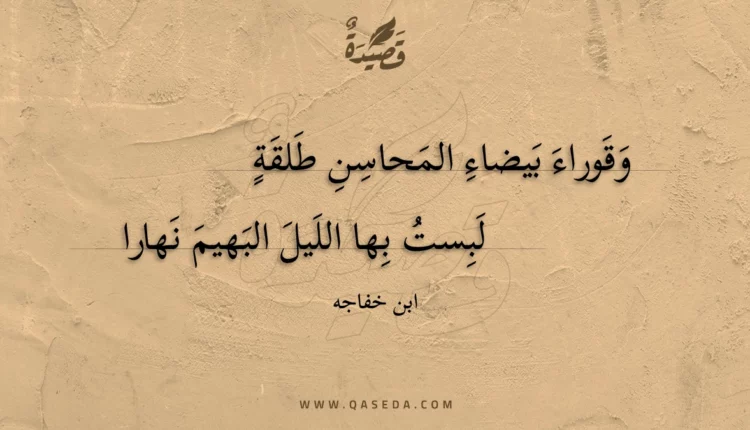 قَصِيْدَةٌ
وَقَوراءَ بَيضاءِ المَحاسِنِ طَلقَةٍ
لَبِستُ بِها اللَيلَ البَهيمَ نَهارا
ابن خفاجه
WWW.QASEDA.COM